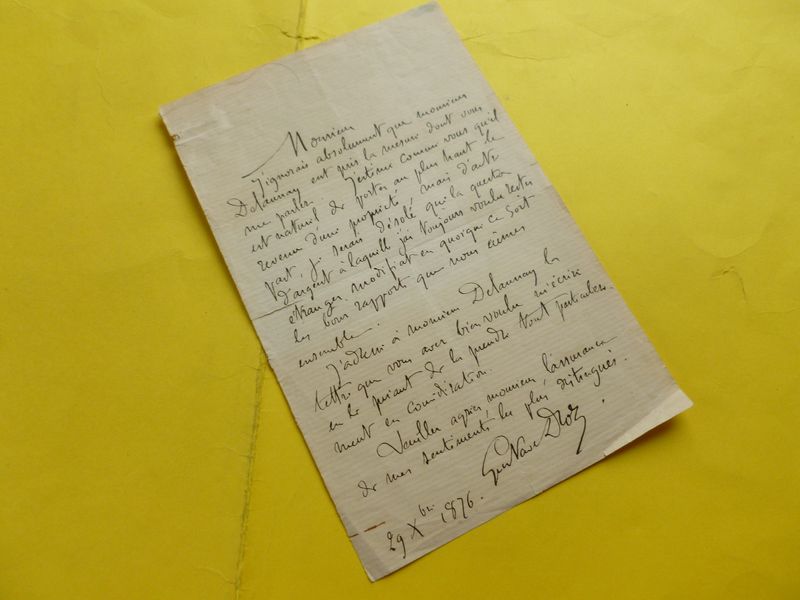 Monsieur
J'ignorais absolument que monsieur
Delaunay eut pris la mesure dont vous
me parlez. J'estime comme vous qu'il
est naturel de porter au plus haut le
revenu d'une propriété, mais d'autre
part, je serais désolé que la question
d'argent à laquelle j'ai toujours voulu rester
étranger, modifiat en quoique ce soit
les bons rapports que nous eûmes
ensemble.
J'adresse à monsieur Delaunay la
lettre que vous avez bien voulu m'écrire
en le priant de la prendre tout particulière-
ment en considération.
Veuillez agréer, monsieur, l'assurance
de mes sentiments les plus distingués.
Gustave Droz
29 Xbre 1876.